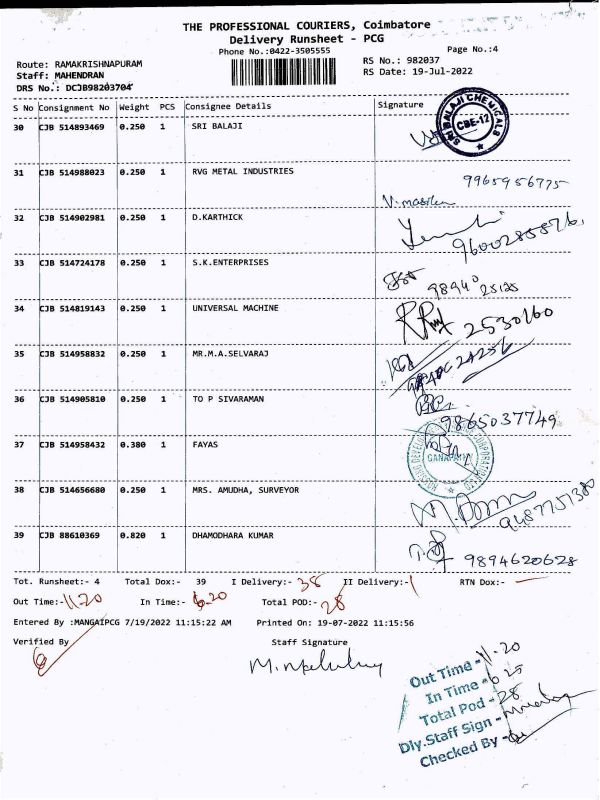 THE PROFESSIONAL COURIERS, Coimbatore
Delivery Runsheet - PCG
Phone No.:0422-3505555
Page No.:4
Route: RAMAKRISHNAPURAM
RS No.: 982037
Staff: MAHENDRAN
RS Date: 19-Jul-2022
DRS No.: DCJB98203704
S No Consignment No Weight PCS Consignee Details Signature
30 CJB 514893469 0.250 1 SRI BALAJI
SRI BALAJI CHEMICALS
CBE-12
31 CJB 514988023 0.250 1 RVG METAL INDUSTRIES
9965956775
32 CJB 514902981 0.250 1 D.KARTHICK
9600285876
33 CJB 514724178 0.250 1 S.K.ENTERPRISES
98940 25125
34 CJB 514819143 0.250 1 UNIVERSAL MACHINE
2530160
35 CJB 514958832 0.250 1 MR.M.A.SELVARAJ
36 CJB 514905810 0.250 1 TO P SIVARAMAN
9865037749
37 CJB 514958432 0.380 1 FAYAS
38 CJB 514656680 0.250 1 MRS. AMUDHA, SURVEYOR
9487751380
39 CJB 88610369 0.820 1 DHAMODHARA KUMAR
9894620628
Tot. Runsheet:- 4 Total Dox:- 39 I Delivery:- 38 II Delivery:- 1 RTN Dox:- —
Out Time:- 11.20 In Time:- 6.20 Total POD:- 28
Entered By :MANGAIPCG 7/19/2022 11:15:22 AM Printed On: 19-07-2022 11:15:56
Verified By Staff Signature
Out Time - 11-20
In Time - 6 25
Total Pod - 28
Dly.Staff Sign -
Checked By -